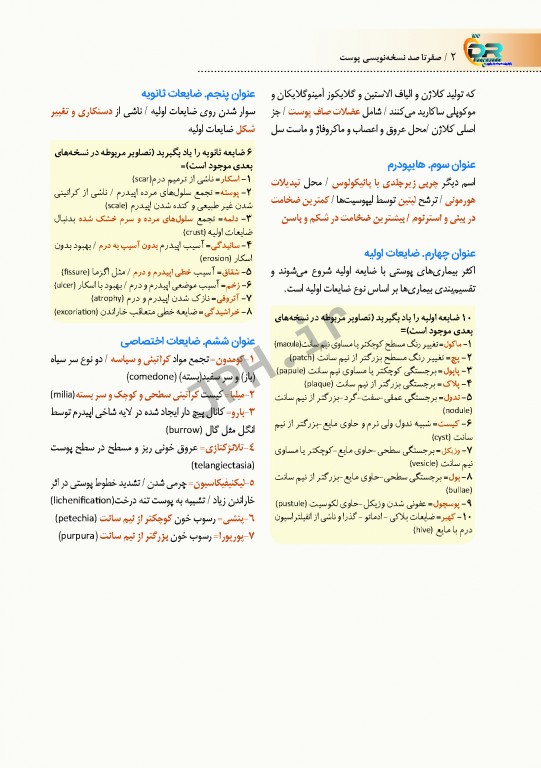 ۲ / صفر تا صد نسخه‌نویسی پوست
که تولید کلاژن و الیاف الاستین و گلایکوز آمینوگلایکان و
موکوپلی ساکارید می‌کنند / شامل عضلات صاف پوست / جز
اصلی کلاژن /محل عروق و اعصاب و ماکروفاژ و ماست سل
عنوان سوم. هایپودرم
اسم دیگر چربی زیرجلدی یا پانیکولوس / محل تبدیلات
هورمونی / ترشح لپتین توسط لیپوسیت‌ها / کمترین ضخامت
در بینی و استرنوم / بیشترین ضخامت در شکم و باسن
عنوان چهارم. ضایعات اولیه
اکثر بیماری‌های پوستی با ضایعه اولیه شروع می‌شوند و
تقسیم‌بندی بیماری‌ها بر اساس نوع ضایعات اولیه است.
۱۰ ضایعه اولیه را یاد بگیرید (تصاویر مربوطه در نسخه‌های
بعدی موجود است)=
۱- ماکول= تغییر رنگ مسطح کوچکتر یا مساوی نیم سانت(macula)
۲- پچ= تغییر رنگ مسطح بزرگتر از نیم سانت (patch)
۳- پاپول= برجستگی کوچکتر یا مساوی نیم سانت (papule)
۴- پلاک= برجستگی بزرگتر از نیم سانت (plaque)
۵- ندول= برجستگی عمقی-سفت-گرد-بزرگتر از نیم سانت
(nodule)
۶- کیست= شبیه ندول ولی نرم و حاوی مایع-بزرگتر از نیم
سانت (cyst)
۷- وزیکل= برجستگی سطحی-حاوی مایع-کوچکتر یا مساوی
نیم سانت (vesicle)
۸- بول= برجستگی سطحی-حاوی مایع-بزرگتر از نیم سانت
(bullae)
۹- پوسچول= عفونی شدن وزیکل-حاوی لکوسیت (pustule)
۱۰- کهیر= ضایعات پلاکی - ادماتو - گذرا و ناشی از انفیلتراسیون
درم با مایع (hive)
عنوان پنجم. ضایعات ثانویه
سوار شدن روی ضایعات اولیه / ناشی از دستکاری و تغییر
شکل ضایعات اولیه
۶ ضایعه ثانویه را یاد بگیرید (تصاویر مربوطه در نسخه‌های
بعدی موجود است)=
۱- اسکار= ناشی از ترمیم درم(scar)
۲- پوسته= تجمع سلول‌های مرده اپیدرم / ناشی از کراتینی
شدن غیر طبیعی و کنده شدن اپیدرم (scale)
۳- دلمه= تجمع سلول‌های مرده و سرم خشک شده بدنبال
ضایعات اولیه (crust)
۴- سائیدگی= آسیب اپیدرم بدون آسیب به درم / بهبود بدون
اسکار (erosion)
۵- شقاق= آسیب خطی اپیدرم و درم / مثل اگزما (fissure)
۶- زخم= آسیب موضعی اپیدرم و درم / بهبود با اسکار (ulcer)
۷- آتروفی= نازک شدن اپیدرم و درم (atrophy)
۸- خراشیدگی= ضایعه خطی متعاقب خاراندن (excoriation)
عنوان ششم. ضایعات اختصاصی
۱- کومدون= تجمع مواد کراتینی و سباسه / دو نوع سر سیاه
(باز) و سر سفید(بسته) (comedone)
۲- میلیا= کیست کراتینی سطحی و کوچک و سر بسته(milia)
۳- بارو= کانال پیچ دار ایجاد شده در لایه شاخی اپیدرم توسط
انگل مثل گال (burrow)
۴- تلانژکتازی= عروق خونی ریز و مسطح در سطح پوست
(telangiectasia)
۵- لیکنیفیکاسیون= چرمی شدن / تشدید خطوط پوستی در اثر
خاراندن زیاد / تشبیه به پوست تنه درخت(lichenification)
۶- پتشی= رسوب خون کوچکتر از نیم سانت (petechia)
۷- پورپورا= رسوب خون بزرگتر از نیم سانت (purpura)
JPH.ir